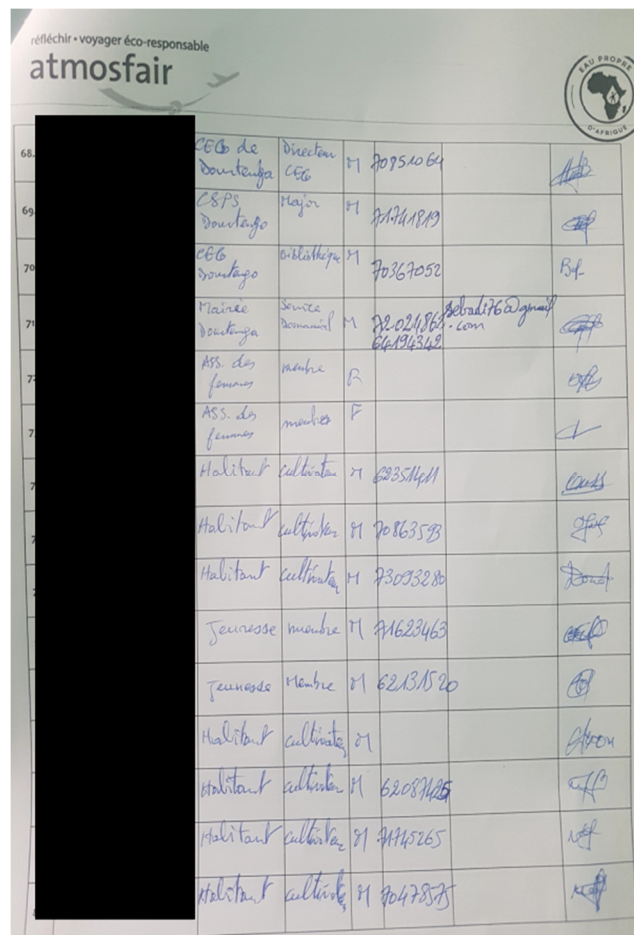 réfléchir • voyager éco-responsable
atmosfair
EAU PROPRE
D'AFRIQUE
68.
CEG de Dourtenga
Directeur CEG
M
70851064
69.
CSPS Dourtenga
Major
M
71741819
70
CEG Dourtenga
Bibliothèque
M
70367052
71
Mairie Dourtenga
Service Domanial
M
72024862
64194342
sebadi76@gmail
.com
Ass. des femmes
membre
F
Ass. des femmes
membres
F
Habitant
cultivateur
M
62351411
Habitant
cultivateur
M
70863593
Habitant
cultivateur
M
73093280
Jeunesse
membre
M
71623463
Jeunesse
Membre
M
62131520
Habitant
cultivateur
M
Habitant
cultivateur
M
62087425
Habitant
cultivateur
M
71745265
Habitant
cultivateur
M
70478575